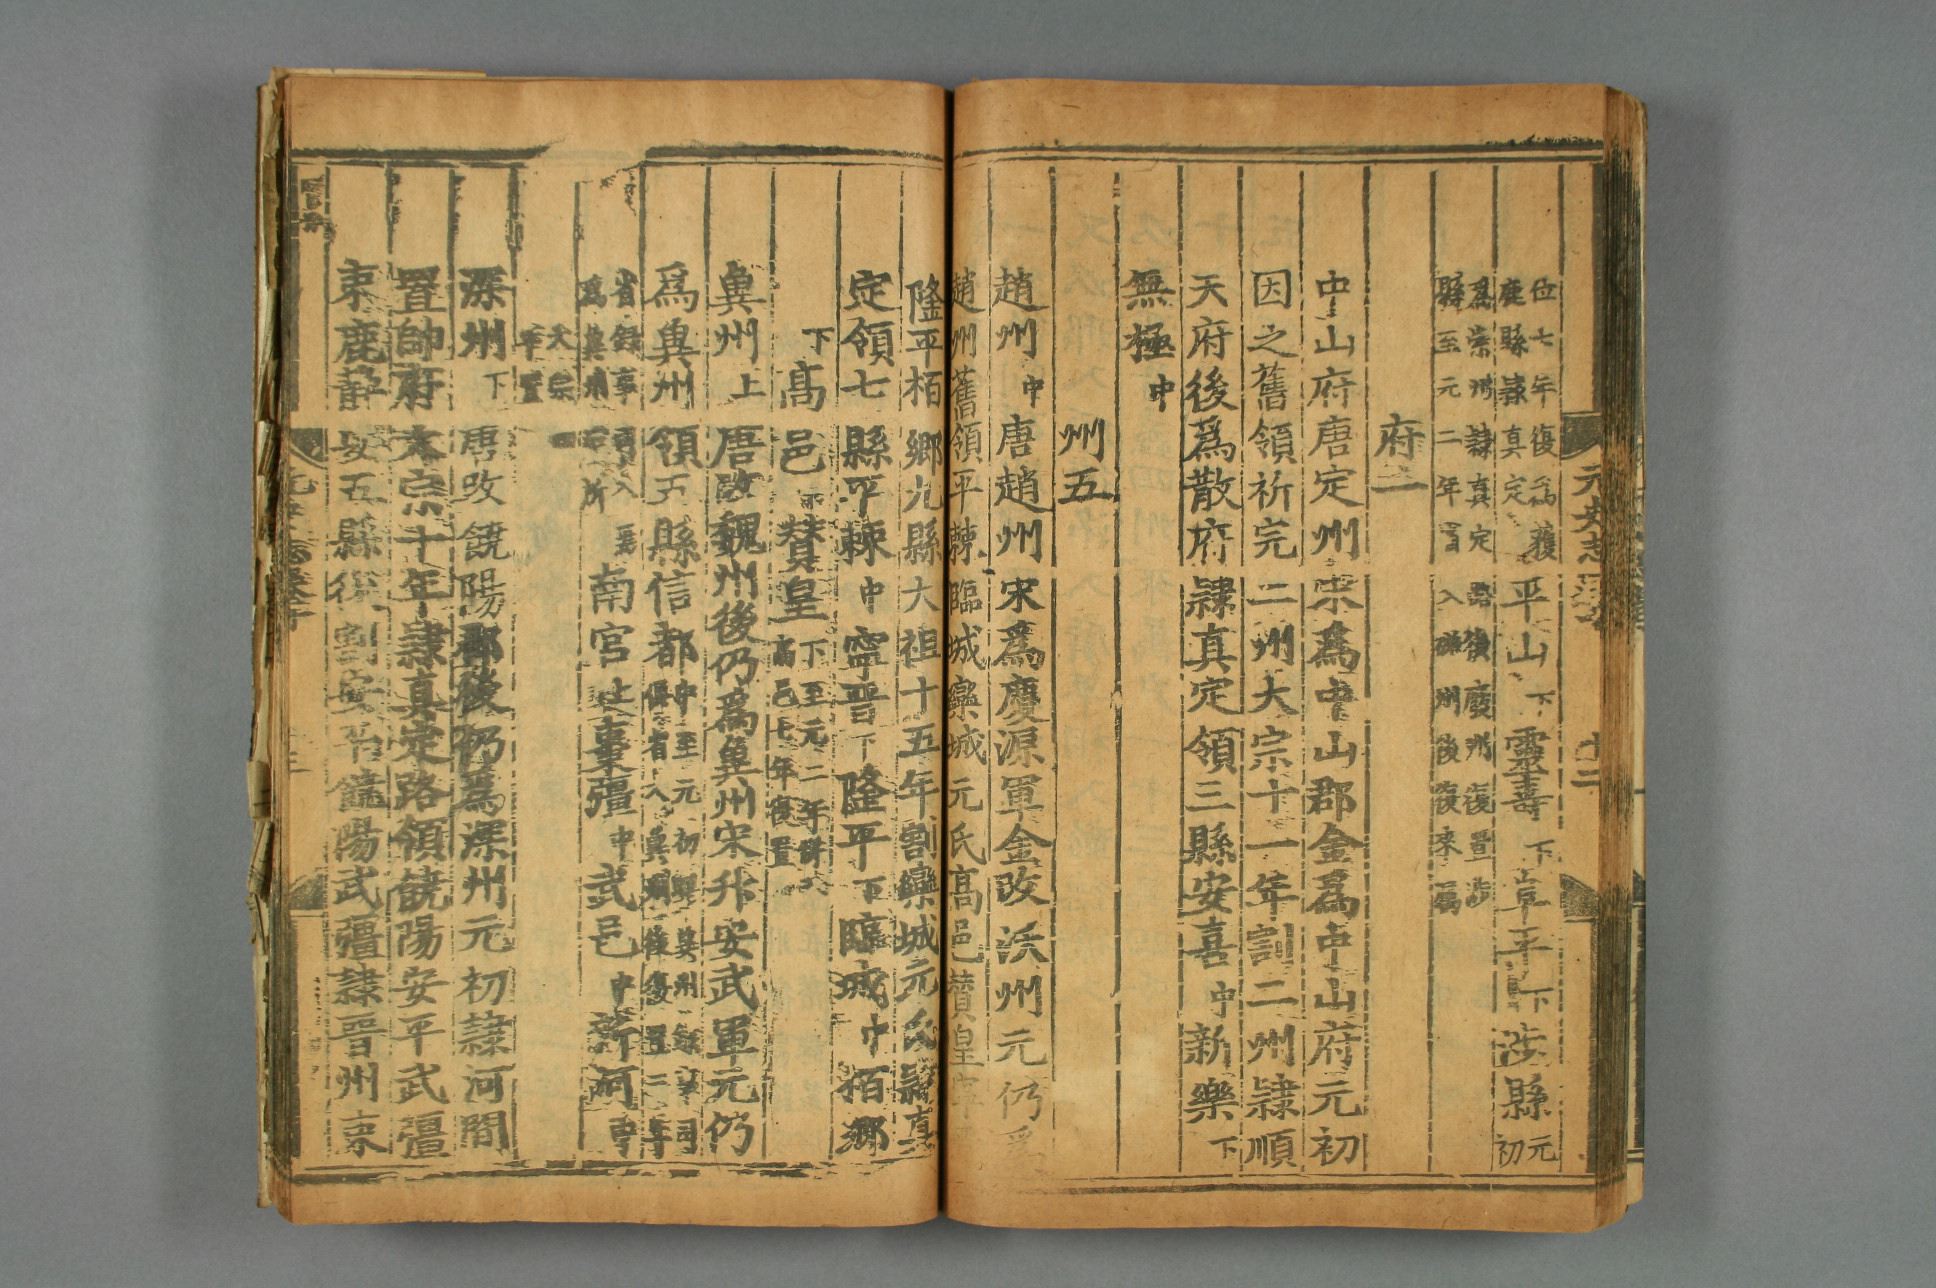 位七年復爲獲鹿縣隸真定平山下靈壽下阜平下涉縣元初
爲崇州隸真定路後廢州復置涉縣至元二年省入磁州後復來屬
府一
中山府唐定州宋爲中山郡金爲中山府元初
因之舊領祈完二州太宗十一年割二州隸順
天府後爲散府隸真定領三縣安喜中新樂下
無極中
州五
趙州中唐趙州宋爲慶源軍金改沃州元仍爲
趙州舊領平棘臨城欒城元氏高邑贊皇寧
隆平柏鄉九縣太祖十五年割欒城元氏隸真
定領七縣平棘中寧晉下隆平下臨城中柏鄉
下高邑下贊皇下至元二年併入高邑七年復置
冀州上唐改魏州後仍爲冀州宋升安武軍元仍
爲冀州領五縣信都中至元初與冀州錄事司俱省入冀州後復置二年
省錄事司入焉爲冀州治所南宮上棗強中武邑中新河中
太宗四年置
深州下唐改饒陽郡後仍爲深州元初隸河間
置帥府太宗十年隸真定路領饒陽安平武彊
束鹿靜安五縣後割安平饒陽武彊隸晉州束
元史志卷十
十二